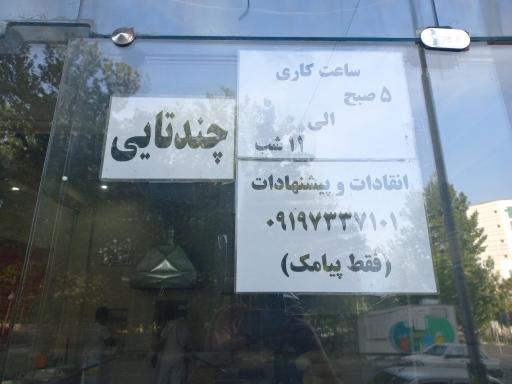 ساعت کاری
۵ صبح
الی
۱۱ شب
چندتایی
انقادات و پیشنهادات
۰۹۱۹۷۳۳۷۱۰۱
(فقط پیامک)